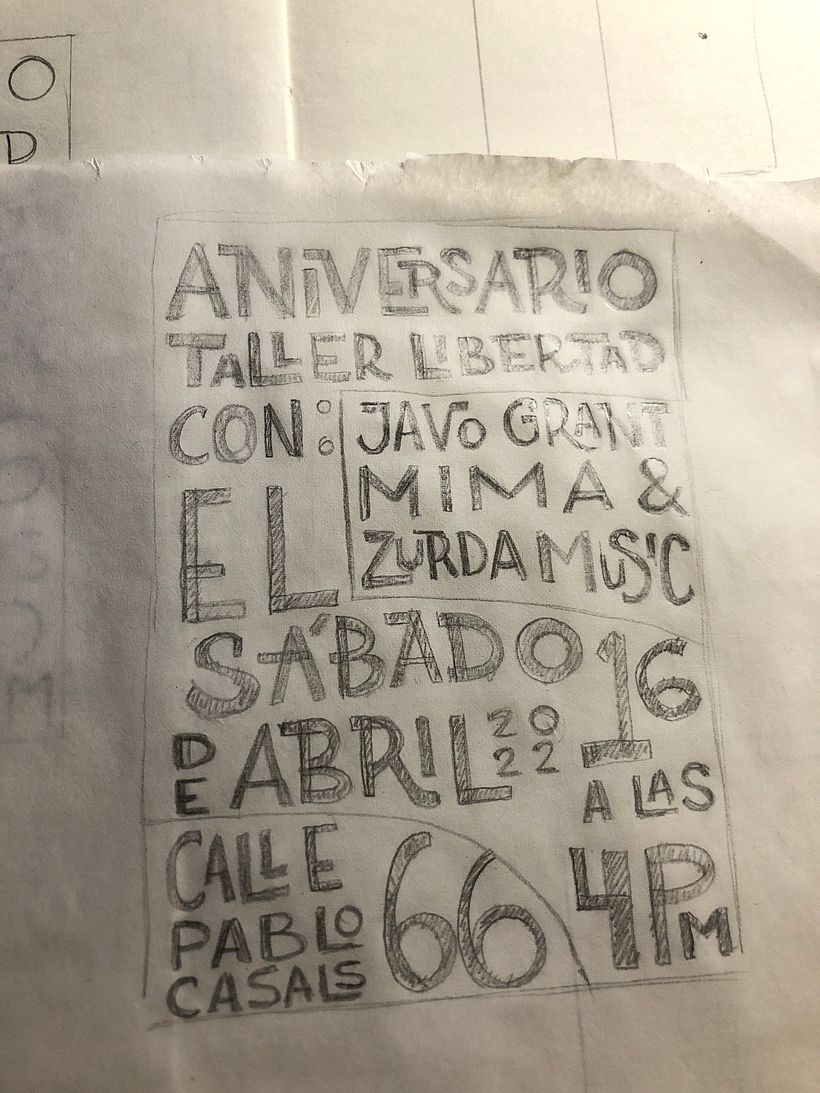 O
D
ANiVERSARIO
TaLLER LiBERTAD
CON:
JAVo GRANT
MIMA &
ZuRDA MuSiC
EL
SÁBADO 16
DE ABRIL 2022
A LAS
4PM
CALLE
PABLO
CASALS
66